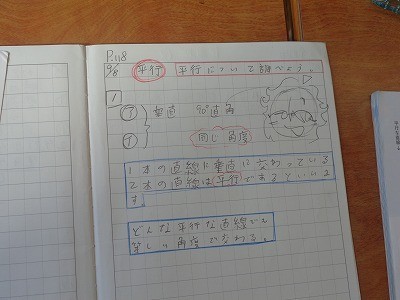 P.118
9/8 平行 平行について調べよう。
1
㋐ 垂直 90° 直角
㋑ 同じ角度
1本の直線に垂直に交わっている
2本の直線は平行であるといいま
す。
どんな平行な直線でも
等しい角度で交わる。